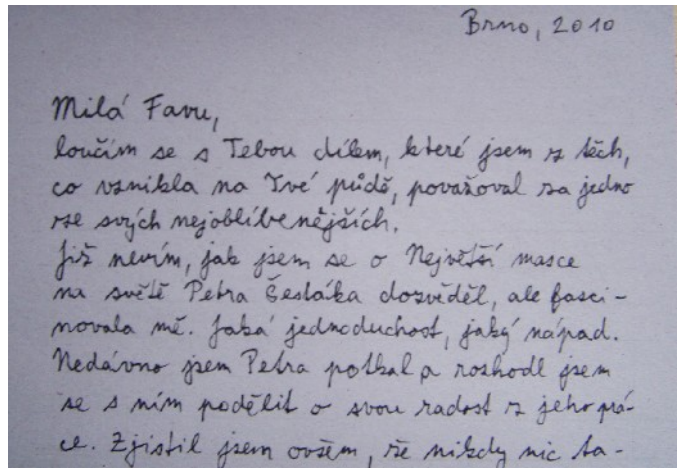 Brno, 2010
Milá Favu,
loučím se s Tebou dílem, které jsem z těch,
co vznikla na Tvé půdě, považoval za jedno
ze svých nejoblíbenějších.
Již nevím, jak jsem se o Největší masce
na světě Petra Šesláka dozvěděl, ale fasci-
novala mě. Jaká jednoduchost, jaký nápad.
Nedávno jsem Petra potkal a rozhodl jsem
se s ním podělit o svou radost z jeho prá-
ce. Zjistil jsem ovšem, že nikdy nic ta-